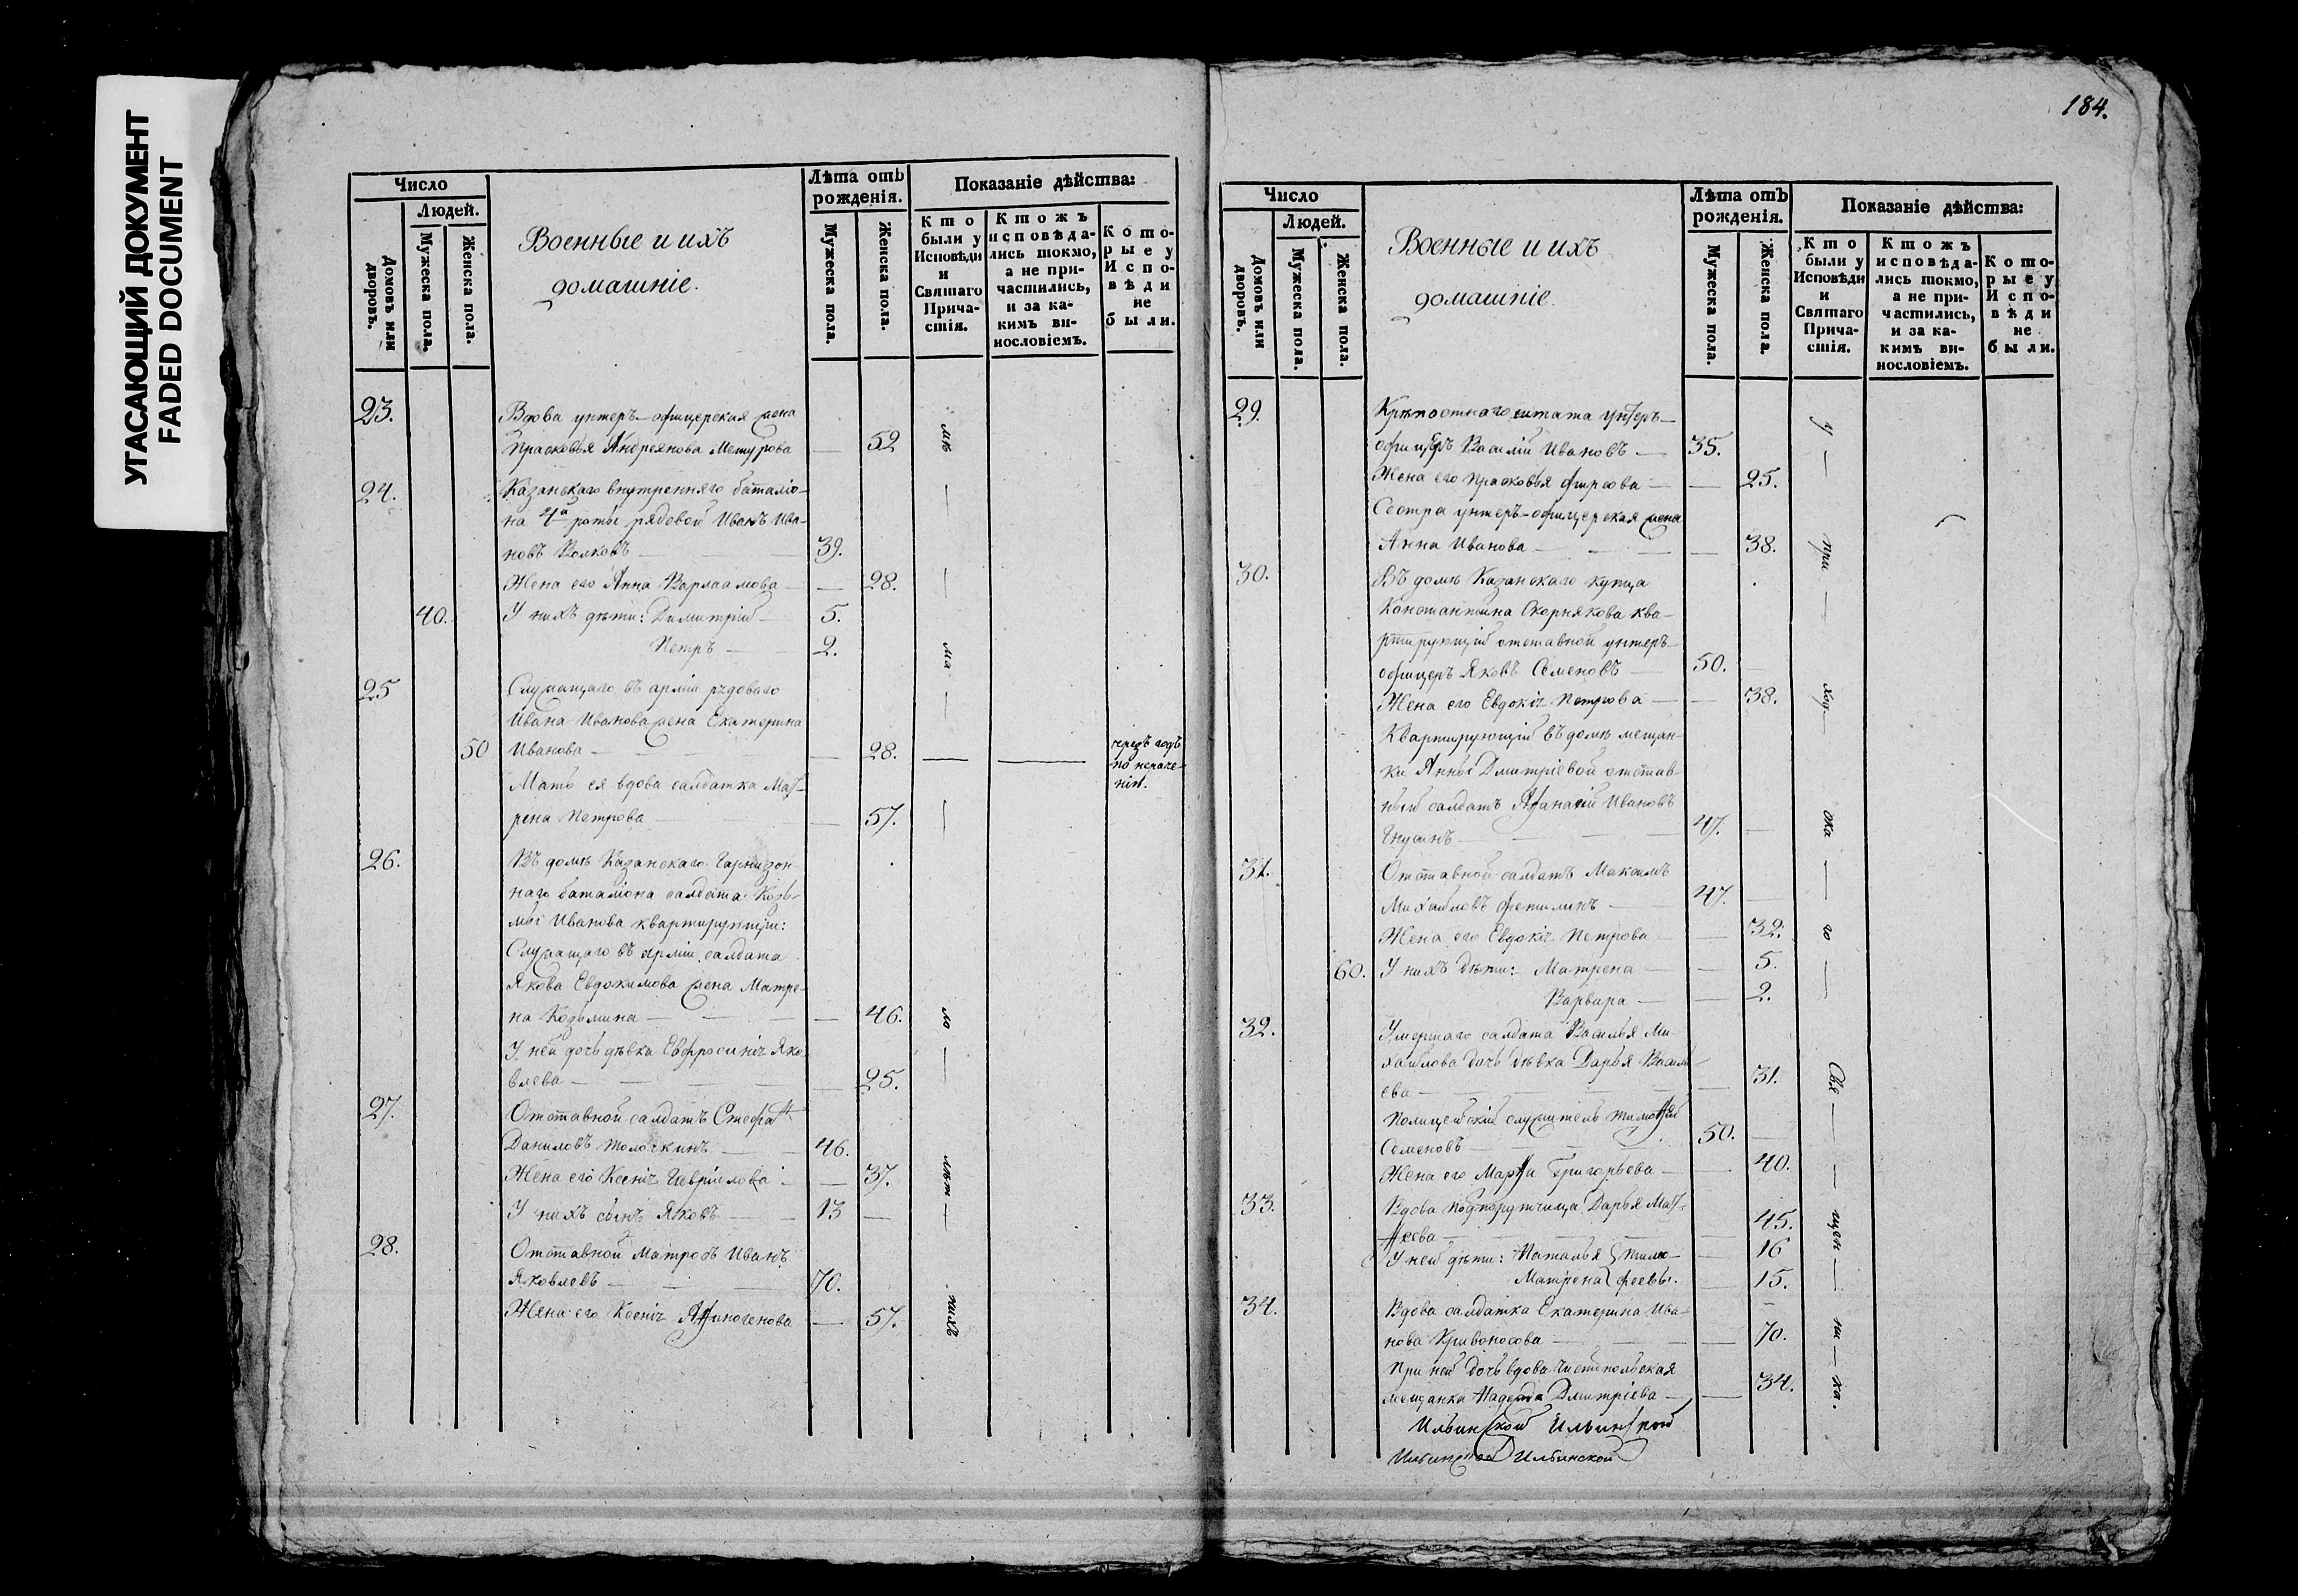 УГАСАЮЩИЙ ДОКУМЕНТ
FADED DOCUMENT
Число
Людей.
Домовъ или дворовъ.
Мужеска пола.
Женска пола.
Военные и ихъ
домашніе.
Лѣта отъ рожденія.
Мужеска пола.
Женска пола.
Показаніе дѣйства:
Кто были у Исповѣди и Святаго Причастія.
Ктожъ исповѣдались токмо, а не причастились, и за какимъ винословіемъ.
Которые у Исповѣди не были.
23. Вдова унтеръ-офицерская жена
Прасковья Андреянова — 52
24. Казанскаго внутренняго баталіо-
на 4й роты рядовой Иванъ Ива-
новъ Волковъ — 39.
Жена его Анна Варлаамова — — 28.
40. У нихъ дѣти: Димитрій — 5.
Петръ — 2.
25 Служащаго въ арміи рядоваго
Ивана Иванова жена Екатерина
50 Иванова — — 28. — — чрезъ годъ
по нераче-
нію.
Мать ея вдова салдатка Мат-
рена Петрова — — 57.
26. Въ домѣ Казанскаго Гарнизон-
наго баталіона салдата Козь-
мы Иванова квартирующіи:
Служащаго въ арміи салдата
Якова Евдокимова жена Матре-
на Козьмина — — 46.
У ней дочь дѣвка Евфросинія Яко-
влева — — 25.
27. Отставной салдатъ Стефан
Даниловъ Толочкинъ — 46.
Жена его Ксенія Гавріилова — — 37.
У нихъ сынъ Яковъ — 13 —
28. Отставной Матросъ Иванъ
Яковлевъ — 70.
Жена его Ксенія Афиногенова — 57.
184.
Число
Людей.
Домовъ или дворовъ.
Мужеска пола.
Женска пола.
Военные и ихъ
домашніе.
Лѣта отъ рожденія.
Мужеска пола.
Женска пола.
Показаніе дѣйства:
Кто были у Исповѣди и Святаго Причастія.
Ктожъ исповѣдались токмо, а не причастились, и за какимъ винословіемъ.
Которые у Исповѣди не были.
29. Крѣпостнаго штата унтеръ-
офицеръ Василій Ивановъ — 35.
Жена его Прасковья Фирсова — — 25.
Сестра унтеръ-офицерская жена
Анна Иванова — — 38.
30. Въ домѣ Казанскаго купца
Константина Скорнякова ква-
ртирующій отставной унтеръ-
офицеръ Яковъ Семеновъ — 50. —
Жена его Евдокія Петрова — — 38.
Квартирующій въ домѣ мещан-
ки Анны Дмитріевой отстав-
ный салдатъ Афанасій Ивановъ
47. —
31. Отставной салдатъ Максимъ
Михайловъ Фетилинъ — 47. —
Жена его Евдокія Петрова — — 32.
60. У нихъ дѣти: Матрена — — 5.
Варвара — — 2.
32. Умершаго салдата Василья Ми-
хайлова дочь дѣвка Дарья Василь-
ева — — 31.
Полицейскій служитель Тимофей
Семеновъ — 50. —
Жена его Марфа Григорьева — — 40.
33. Вдова подпоручица Дарья Мат-
феева — — 45.
У ней дѣти: Наталья } Тимо- — 16
Матрена } феевы. — 15.
34. Вдова салдатка Екатерина Ива-
нова Кривоносова — — 70.
При ней дочь вдова Чистопольская
мещанка Надежда Дмитріева — — 34.
Ильинской Ильинской
Ильинской Ильинской